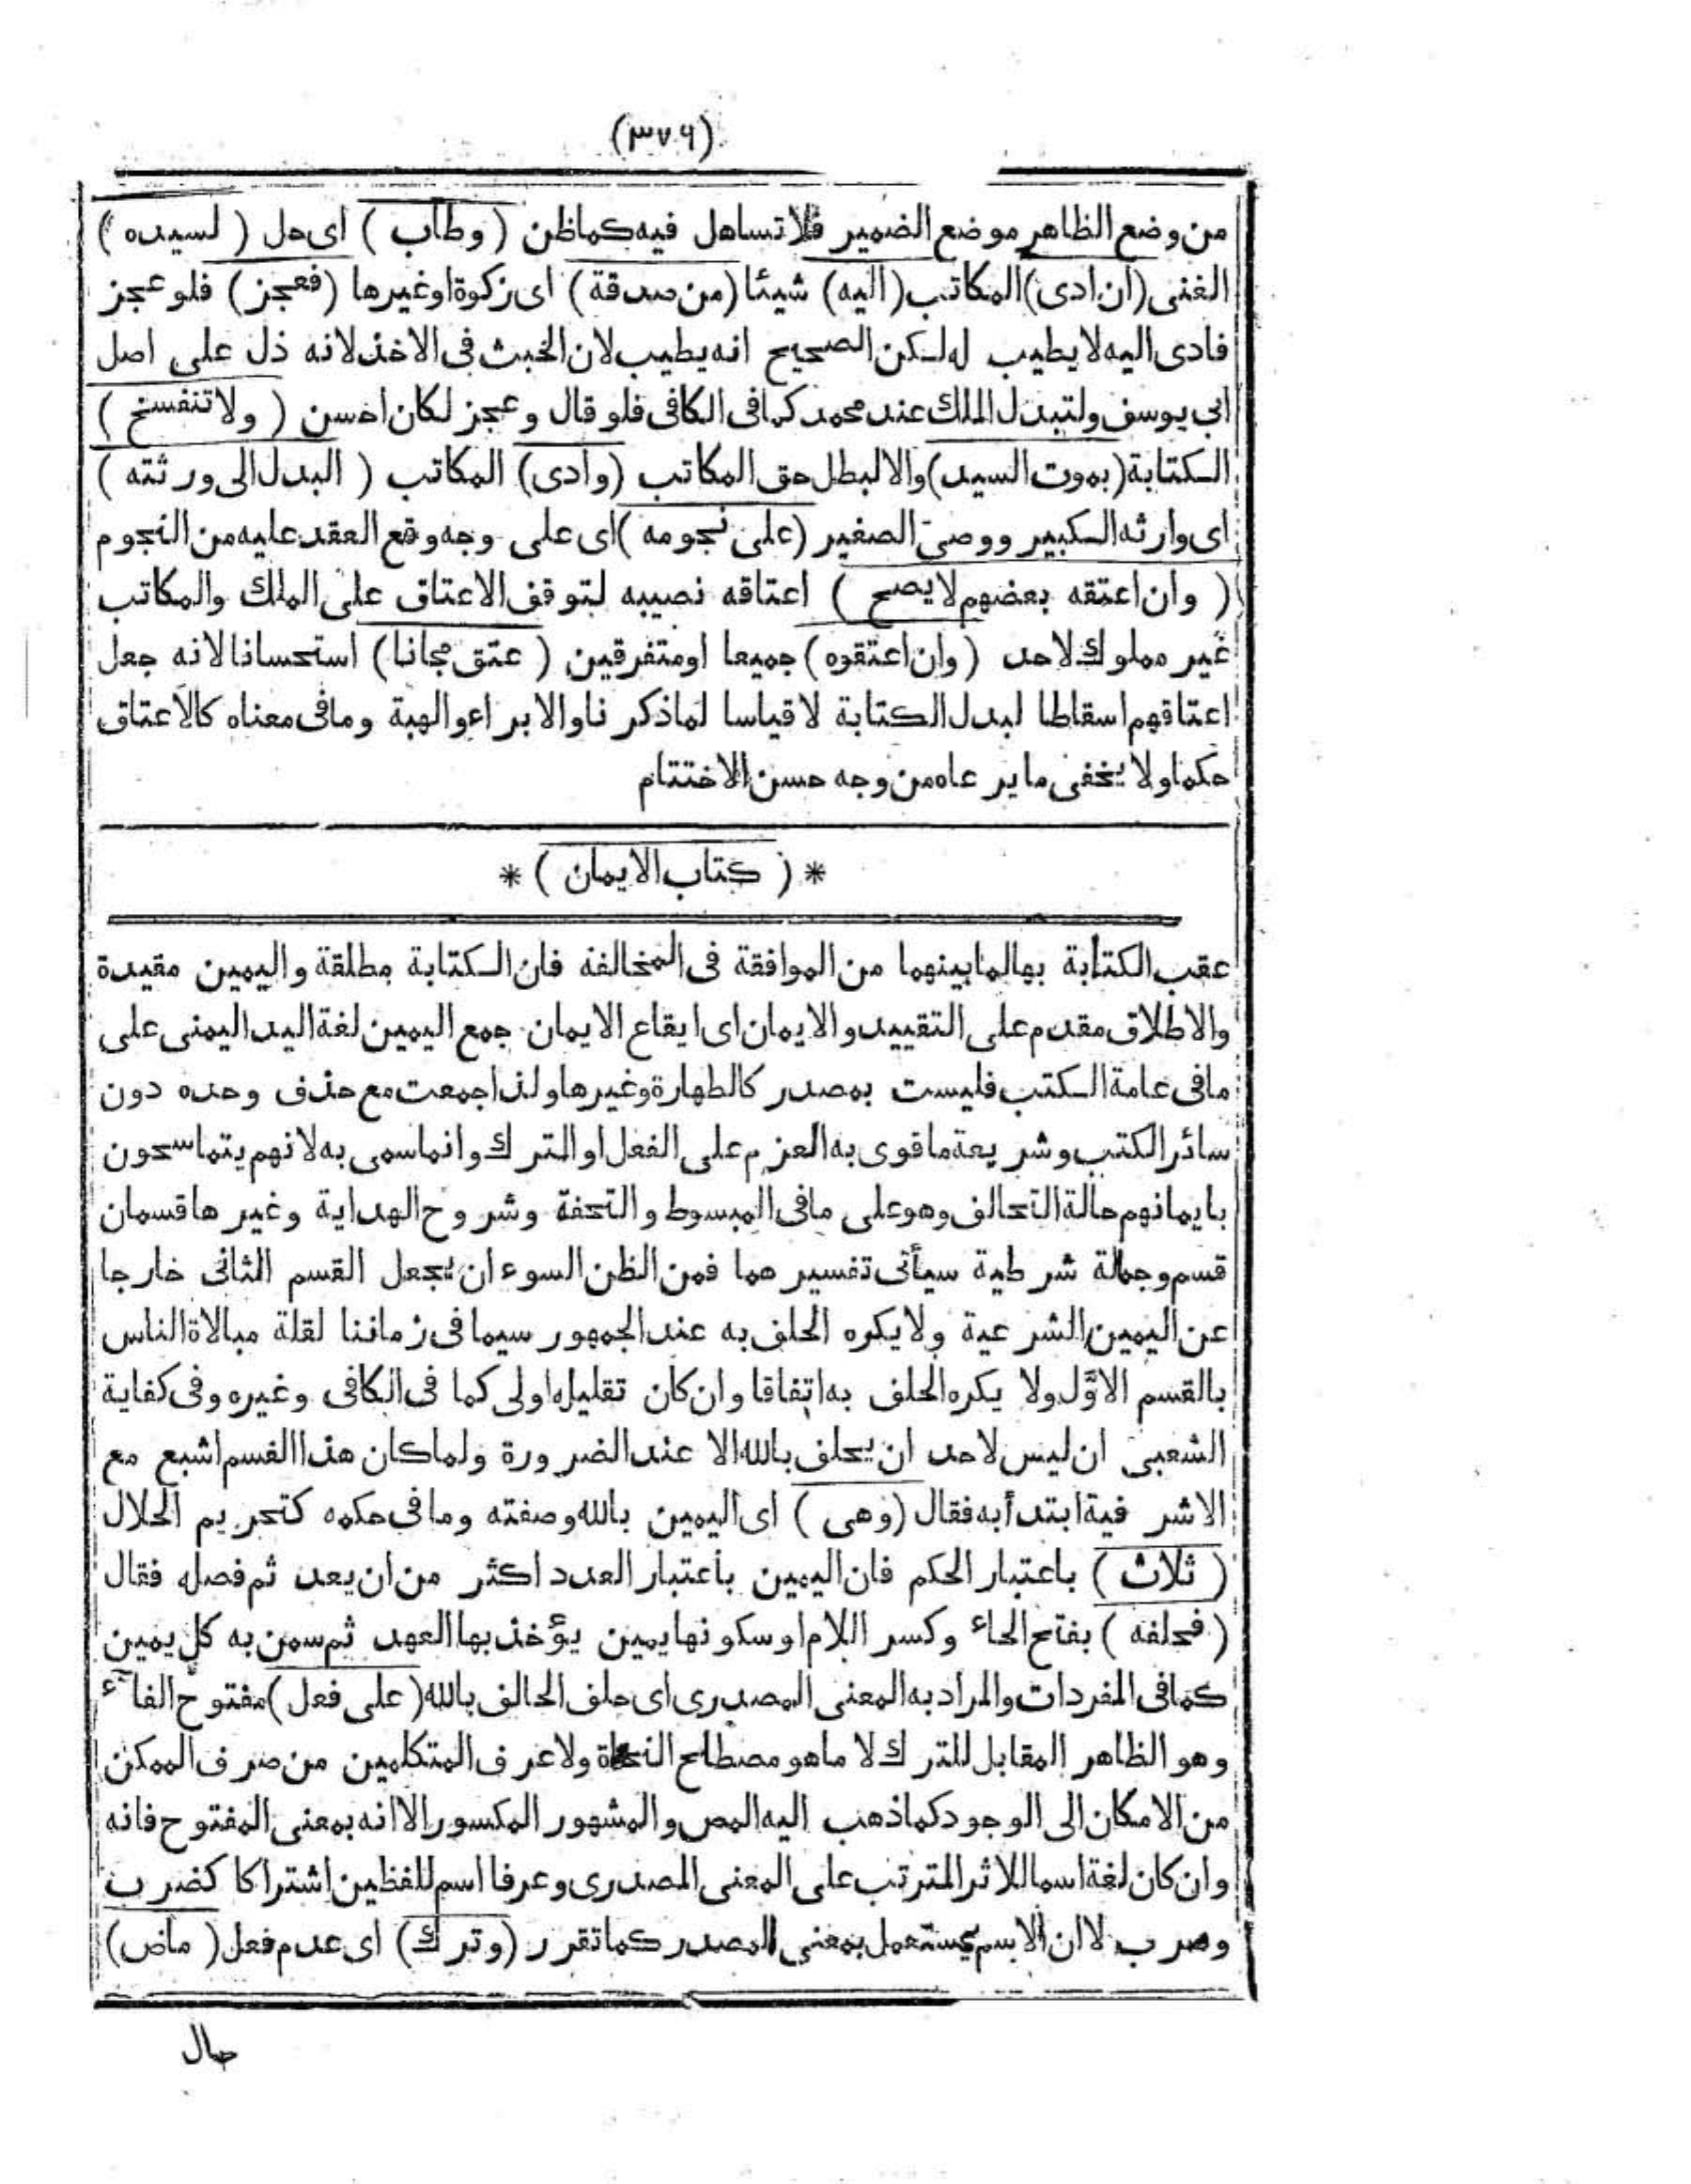 (٣٧٦)
من وضع الظاهر موضع الضمير فلا تساهل فيه كما ظن (وطاب) اى حل (لسيده)
الغنى (ان ادى) المكاتب (اليه) شيئا (من صدقة) اى زكوة او غيرها (فعجز) فلو عجز
فادى اليه لا يطيب له لكن الصحيح انه يطيب لان الخبث فى الاخذ لانه ذل على اصل
ابى يوسف ولتبدل الملك عند محمد كما فى الكافى فلو قال وعجز لكان احسن (ولا تنفسخ)
الكتابة (بموت السيد) والا لبطل حق المكاتب (وادى) المكاتب (البدل الى ورثته)
اى وارثه الكبير ووصى الصغير (على نجومه) اى على وجه وقع العقد عليه من النجوم
(وان اعتقه بعضهم لا يصح) اعتاقه نصيبه لتوقف الاعتاق على الملك والمكاتب
غير مملوك لاحد (وان اعتقوه) جميعا او متفرقين (عتق مجانا) استحسانا لانه جعل
اعتاقهم اسقاطا لبدل الكتابة لا قياسا لما ذكرنا والابراء والهبة وما فى معناه كالاعتاق
حكما ولا يخفى ما يرعاه من وجه حسن الاختتام
* (كتاب الايمان) *
عقب الكتابة بها لما بينهما من الموافقة فى المخالفة فان الكتابة مطلقة واليمين مقيدة
والاطلاق مقدم على التقييد والايمان اى ايقاع الايمان جمع اليمين لغة اليد اليمنى على
ما فى عامة الكتب فليست بمصدر كالطهارة وغيرها ولذا جمعت مع حذف وحده دون
سائر الكتب وشريعة ما قوى به العزم على الفعل او الترك وانما سمى به لانهم يتماسحون
بايمانهم حالة التحالف وهو على ما فى المبسوط والتحفة وشروح الهداية وغيرها قسمان
قسم وجملة شرطية سيأتى تفسيرهما فمن الظن السوء ان يجعل القسم الثانى خارجا
عن اليمين الشرعية ولا يكره الحلف به عند الجمهور سيما فى زماننا لقلة مبالاة الناس
بالقسم الاوّل ولا يكره الحلف به اتفاقا وان كان تقليله اولى كما فى الكافى وغيره وفى كفاية
الشعبى ان ليس لاحد ان يحلف بالله الا عند الضرورة ولما كان هذا القسم اشبع مع
الاشرفية ابتدأ به فقال (وهى) اى اليمين بالله وصفته وما فى حكمه كتحريم الحلال
(ثلاث) باعتبار الحكم فان اليمين باعتبار العدد اكثر من ان يعد ثم فصله فقال
(فحلفه) بفتح الحاء وكسر اللام او سكونها يمين يؤخذ بها العهد ثم سمى به كل يمين
كما فى المفردات والمراد به المعنى المصدرى اى حلف الحالف بالله (على فعل) مفتوح الفاء
وهو الظاهر المقابل للترك لا ما هو مصطلح النحاة ولا عرف المتكلمين من صرف الممكن
من الامكان الى الوجود كما ذهب اليه المص والمشهور المكسور الا انه بمعنى المفتوح فانه
وان كان لغة اسما للاثر المترتب على المعنى المصدرى وعرفا اسم للفظين اشتراكا كضرب
وصرب لا ان الاسم يستعمل بمعنى المصدر كما تقرر (وترك) اى عدم فعل (ماض)
حال